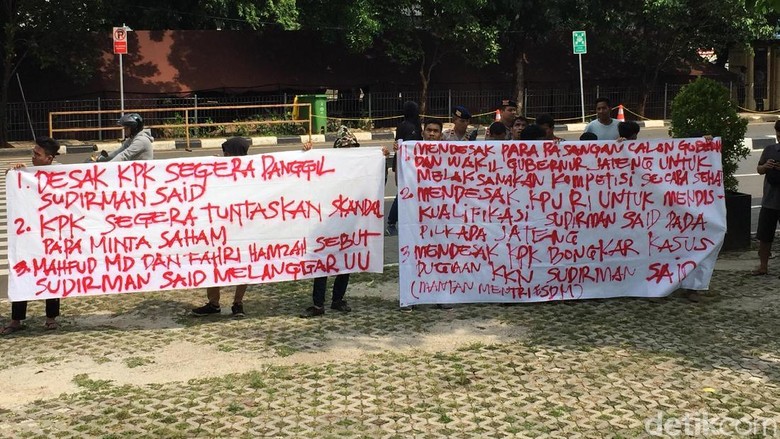 1. DESAK KPK SEGERA PANGGIL
SUDIRMAN SAID
2. KPK SEGERA TUNTASKAN SKANDAL
PAPA MINTA SAHAM
3. MAHFUD MD DAN FAHRI HAMZAH SEBUT
SUDIRMAN SAID MELANGGAR UU
1. MENDESAK PARA PASANGAN CALON GUBERNUR
DAN WAKIL GUBERNUR JATENG UNTUK
MELAKSANAKAN KOMPETISI SECARA SEHAT
2. MENDESAK KPU RI UNTUK MENDIS
KUALIFIKASI SUDIRMAN SAID PADA
PILKADA JATENG
3. MENDESAK KPK BONGKAR KASUS
DUGAAN KKN SUDIRMAN SAID
(MANTAN MENTRI ESDM)
P
detikcom